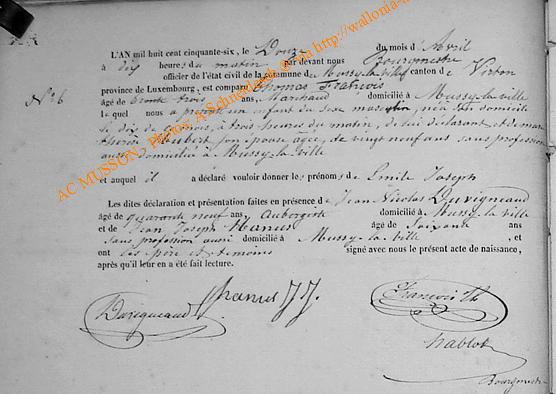 L'AN mil huit cent cinquante-six, le Douze du mois d'Avril
à dix heures du matin par devant nous Bourgmestre
officier de l'état civil de la commune de Mussy-la-Ville canton de Virton
province de Luxembourg, est comparu Thomas François
âgé de trente trois ans, Marchand domicilié à Mussy-la-ville
N° 6
lequel nous a présenté un enfant du sexe masculin, né à son domicile
le dix de ce mois, à trois heures du matin, de lui déclarant et de
Hubert son épouse, âgée de vingt neuf ans sans profession
aussi domiciliée à Mussy-la-ville
et auquel il a déclaré vouloir donner les prénoms de Emile Joseph
Les dites déclaration et présentation faites en présence de Jean Nicolas Duvigneaud
âgé de quarante neuf ans Aubergiste domicilié à Mussy-la-ville
et de Jean Joseph Hanus âgé de soixante ans
sans profession aussi domicilié à Mussy-la-ville, et
ont les père et témoins signé avec nous le présent acte de naissance,
après qu'il leur en a été fait lecture.
Duvigneaud
hanus JJ.
François Th
hablot
Bourgmestre
AC MUSSON, Photos A Schneiderb @ via http://wallonia-